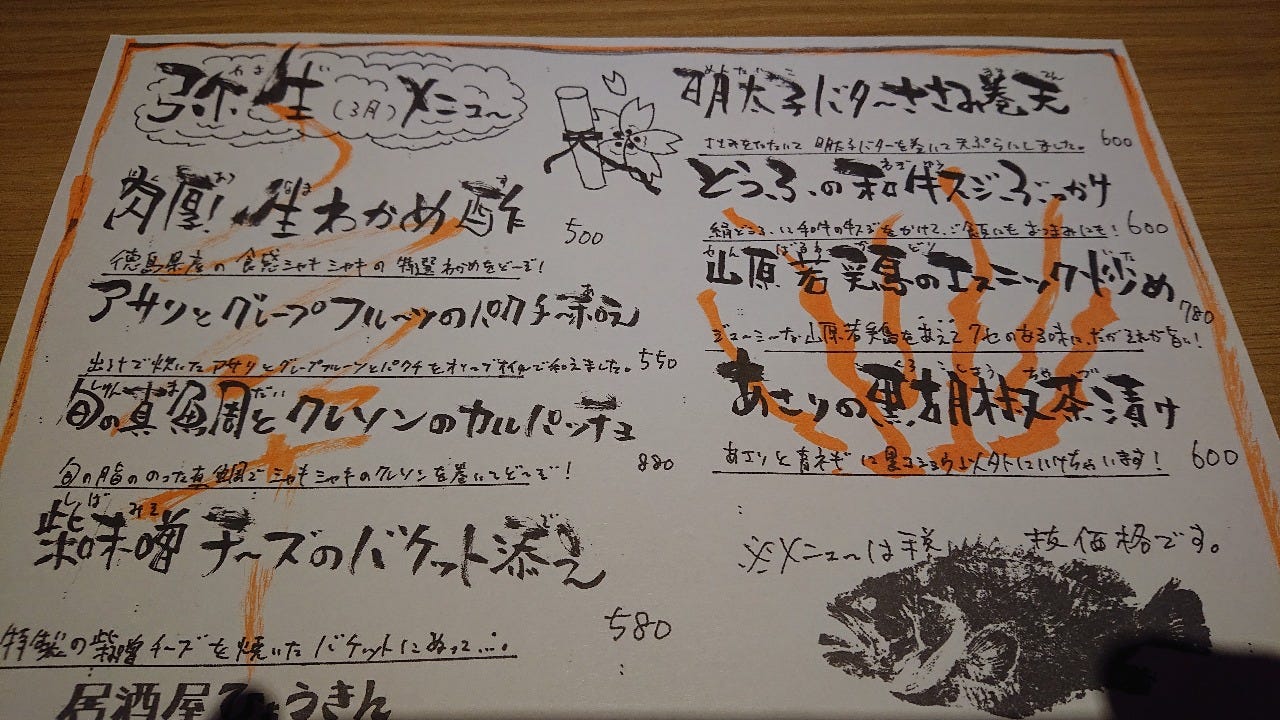 弥生(3月)メニュ〜
肉厚!生わかめ酢
500
徳島県産の食感シャキシャキの特選わかめをど〜ぞ!
アサリとグレープフルーツのパクチー和え
出汁で炊いたアサリとグレープフルーツとパクチをオリーブオイルで和えました。550
旬の真鯛とクレソンのカルパッチョ
880
旬の脂ののった真鯛でシャキシャキのクレソンを巻いてど〜ぞ!
柴味噌チ〜ズのバケット添え
580
特製の柴味噌チーズを焼いたバケットにぬって…。
居酒屋ひょうきん
明太子バタ〜ささみ巻天
ささみをたたいて明太子バターを巻いて天ぷらにしました。600
どうふの和牛スジぶっかけ
絹どうふに和牛の牛スジをかけて、ご飯にもおつまみにも!600
山原若鶏のエスニック炒め
780
ジューシーな山原若鶏をあえてクセのある味に、だがそれが旨い!
あさりの黒胡椒茶漬け
あさりと青ネギに黒コショウ以外といけちゃいます!600
※メニュ〜は税抜価格です。